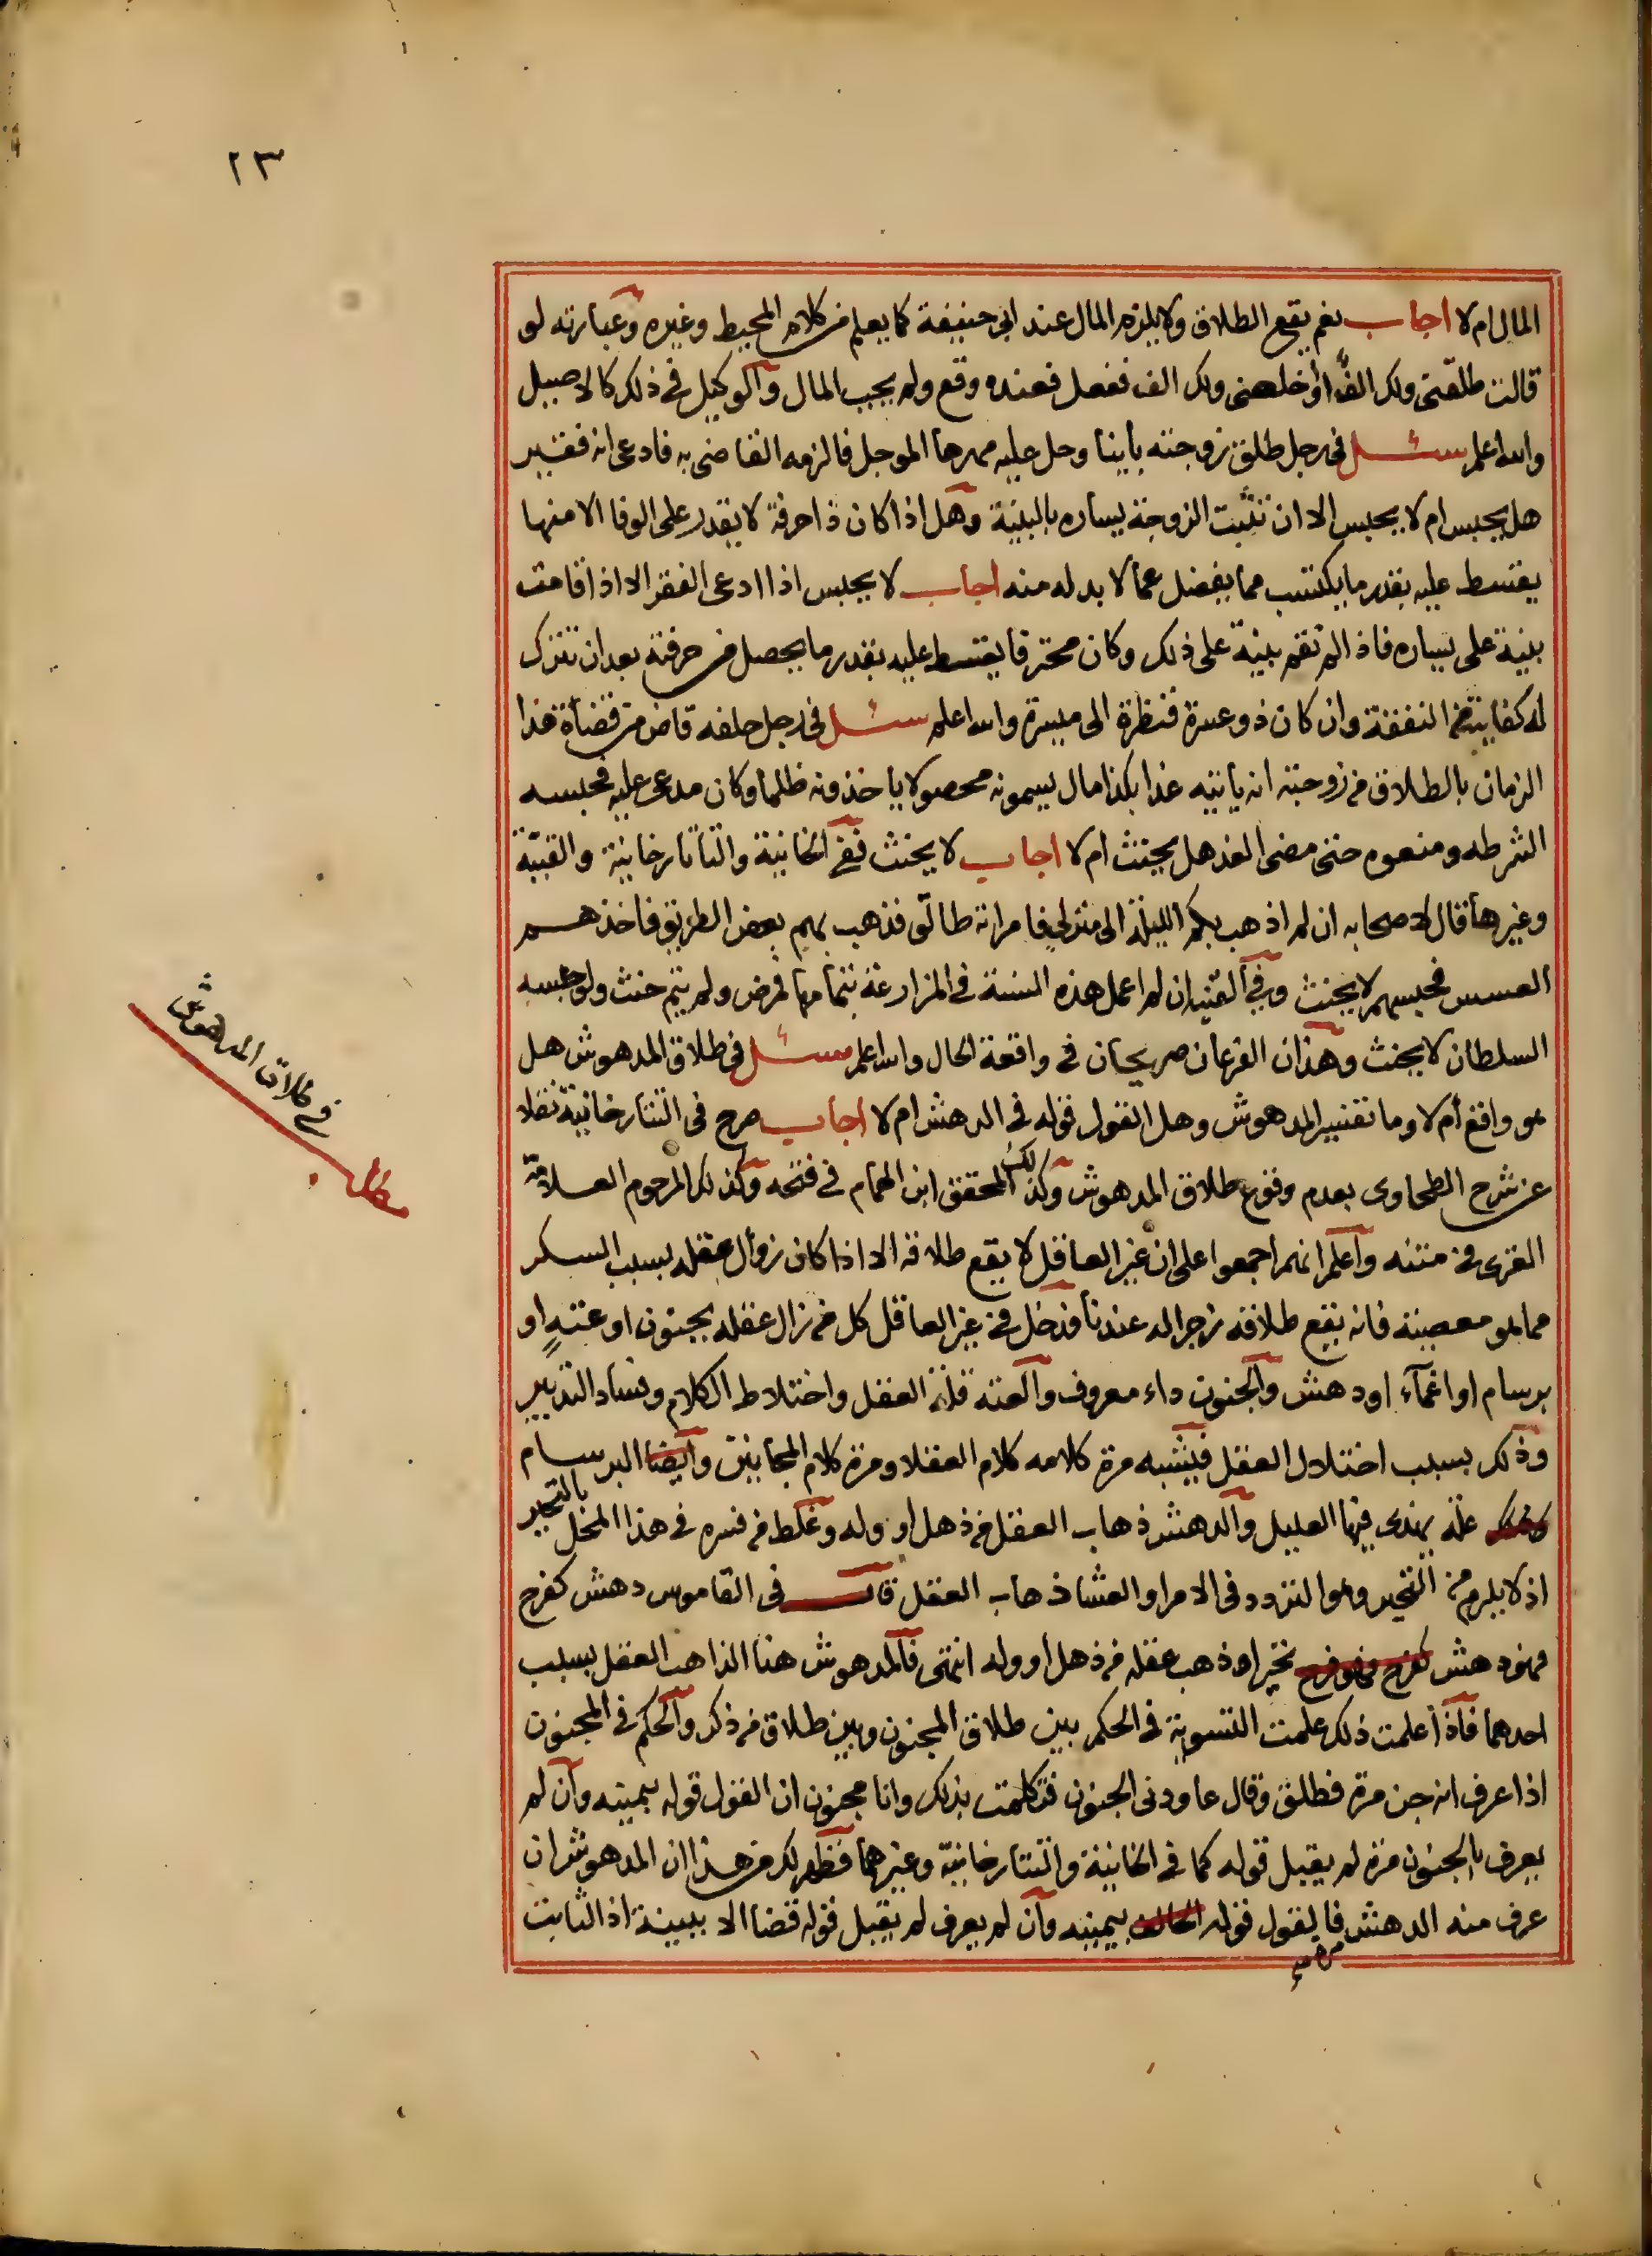 ٢٣
المال ام لا اجاب نعم يقع الطلاق ولا يلزمه المال عند ابي حنيفة كما يعلم من كلام المحيط وغيره وعبارته لو
قالت طلقني ولك الف او اخلعني ولك الف ففعل فعنده وقع ولم يجب المال والوكيل في ذلك كالاصيل
والله اعلم سئل في رجل طلق زوجته باينا وحل عليه مهرها الموجل فالزمه القاضي به فادعى انه فقير
هل يحبس ام لا يحبس الا ان تثبت الزوجة يساره بالبينة وهل اذا كان ذا حرفة لا يقدر على الوفا الا منها
يقسط عليه بقدر ما يكتسب مما يفضل عما لا بد له منه اجاب لا يحبس اذا ادعى الفقر الا اذا قامت
بينة على يساره فاذا لم تقم بينة على ذلك وكان محترفا يقسط عليه بقدر ما يحصل من حرفته بعد ان تترك
له كفايته من النفقة وان كان ذو عسرة فنظرة الى ميسرة والله اعلم سئل في رجل حلفه قاض من قضاة هذا
الزمان بالطلاق من زوجته انه ياتيه غدا بكذا مال يسمونه محصولا ياخذونه ظلما وكان مدعى عليه فحبسه
الشرطه ومنعوه حتى مضى الغد هل يحنث ام لا اجاب لا يحنث ففي الخانية والتاتارخانية والقنية
وغيرها قال لاصحابه ان لم اذهب بكم الليلة الى منزلي فامراته طالق فذهب بهم بعض الطريق فاخذهم
العسس فحبسهم لا يحنث وفي القنية ان لم اعمل هذه السنة في المزارعة بتمامها فمرض ولم يتم حنث ولو حبسه
السلطان لا يحنث وهذان الفرعان صريحان في واقعة الحال والله اعلم سئل في طلاق المدهوش هل
هو واقع أم لا وما تفسير المدهوش وهل القول قوله في الدهش ام لا اجاب صرح في التتارخانية نقلا
عن شرح الطحاوى بعدم وقوع طلاق المدهوش وكذلك المحقق ابن الهمام في فتحه وكذلك المرحوم العلامة
الغزى في متنه واعلم انهم اجمعوا على ان غير العاقل لا يقع طلاقه الا اذا كان زوال عقله بسبب السكر
مما هو معصية فانه يقع طلاقه زجرا له عندنا فدخل في غير العاقل كل من زال عقله بجنون او عتهٍ او
برسام او اغمآء او دهش والجنون داء معروف والعته قلة العقل واختلاط الكلام وفساد التدبير
وذلك بسبب اختلال العقل فيشبه مرة كلامه كلام العقلا ومرة كلام المجانين وايضا البرسام
علة يهذى فيها العليل والدهش ذهاب العقل من ذهل او وله وغلط من فسره في هذا المحل بالتحير
اذ لا يلزم من التحير وهو التردد في الامر او العشا ذهاب العقل قال في القاموس دهش كفرح
فهو دهش كفرح فهو فرح تحير او ذهب عقله من ذهل او وله انتهى فالمدهوش هنا الذاهب العقل بسبب
احدهما فاذا علمت ذلك علمت التسوية في الحكم بين طلاق المجنون وبين طلاق من ذكر والحكم في المجنون
اذا عرف انه جن مرة فطلق وقال عاودني الجنون فتكلمت بذلك وانا مجنون ان القول قوله بيمينه وان لم
يعرف بالجنون مرة لم يقبل قوله كما في الخانية والتتارخانية وغيرهما فظهر لك من هذا ان المدهوش ان
عرف منه الدهش فالقول قوله بيمينه وان لم يعرف لم يقبل قوله قضا الا ببينة اذ الثابت
مرة
في طلاق المدهوش
مطلب